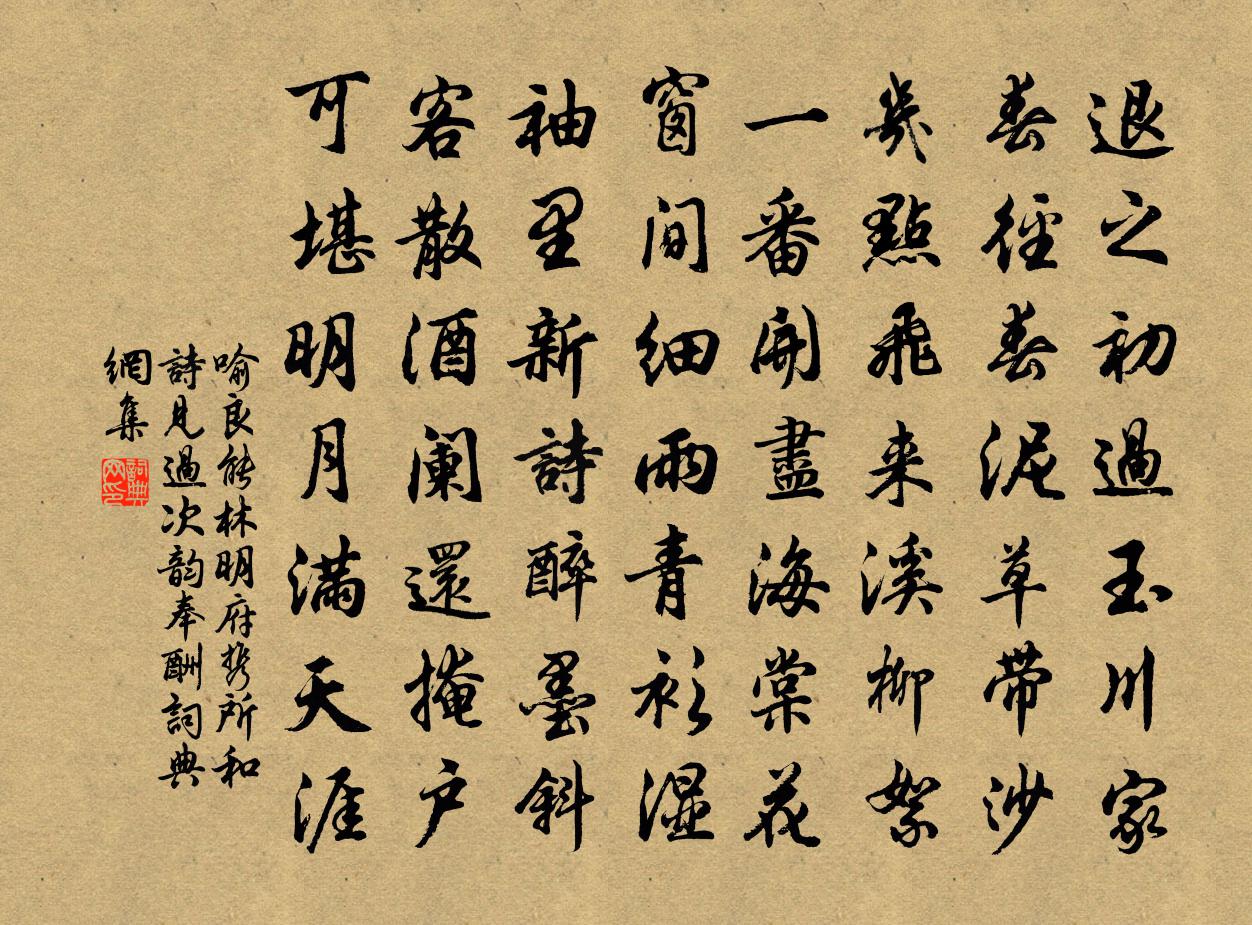 退之初過玉川家
春徑春泥草带沙
幾點飛来溪柳絮
一番開盡海棠花
窗間细雨青衫湿
袖里新詩醉墨斜
客散酒阑還掩户
可堪明月满天涯
喻良能林明府携所和
詩見過次韵奉酬詞典
網集
詞典
网印